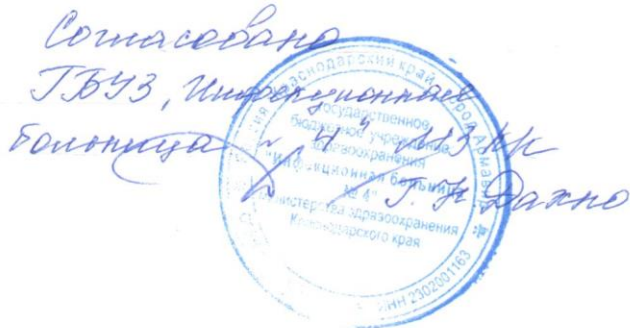 Согласовано
ГБУЗ "Инфекционная
больница № 4" МЗ КК
Г. Н. Дахно
Краснодарский край, город Армавир
Государственное
бюджетное учреждение
здравоохранения
"Инфекционная больница
№ 4"
министерства здравоохранения
Краснодарского края
ИНН 2302001163